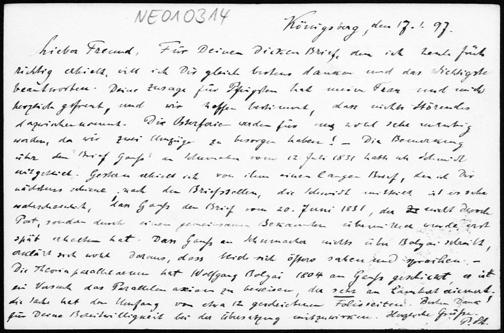 NE010314
Königsberg, den 17.1.97.
Lieber Freund, Für Deinen dicken Brief, den ich heute früh
richtig erhielt, will ich Dir gleich bestens danken und das Wichtigste
beantworten. Deine Zusage für Pfingsten hat meine Frau und mich
herzlich gefreut, und wir hoffen bestimmt, dass nichts Störendes
dazwischenkommt. Die Osterferien werden für uns wohl sehr unruhig
werden, da wir zwei Umzüge zu besorgen haben! – Die Bemerkung
über den Brief Gauß an Schumacher vom 12 Juli 1831 hatte ich Schmidt
mitgeteilt. Gestern erhielt ich von ihm einen langen Brief, den ich Dir
nächstens schicke, nach den Briefstellen, die Schmidt mitteilt ist es sehr
wahrscheinlich, dass Gauß den Brief vom 20. Juni 1831, der nicht durch
Post, sondern durch einen gemeinsamen Bekannten übermittelt wurde, erst
spät erhalten hat. Dass Gauß an Schumacher nichts über Bolyai schreibt,
erklärt sich wohl daraus, dass beide sich öfters sahen und sprachen. –
Die Theoria parallelarum hat Wolfgang Bolyai 1804 an Gauß geschickt, es ist
ein Versuch das Parallelenaxiom zu beweisen, der an Lambert erinnert.
die Sache hat den Umfang von etwa 12 geschriebenen Folioseiten. Besten Dank
für Deine Bereitwilligkeit bei der Übersetzung mitzuwirken. Herzliche Grüße,
P. St.